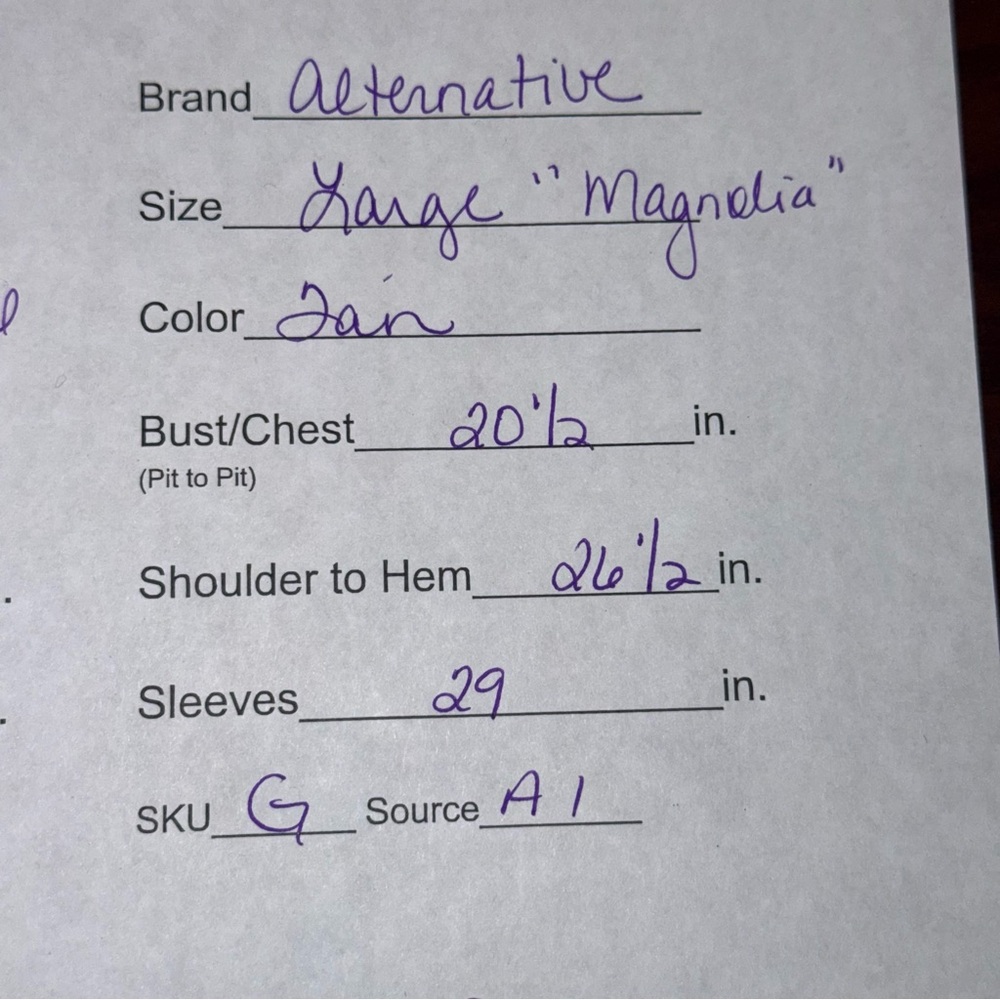 Brand Alternative
Size Large "Magnolia"
Color Tan
Bust/Chest 20 1/2 in.
(Pit to Pit)
Shoulder to Hem 26 1/2 in.
Sleeves 29 in.
SKU G Source A1